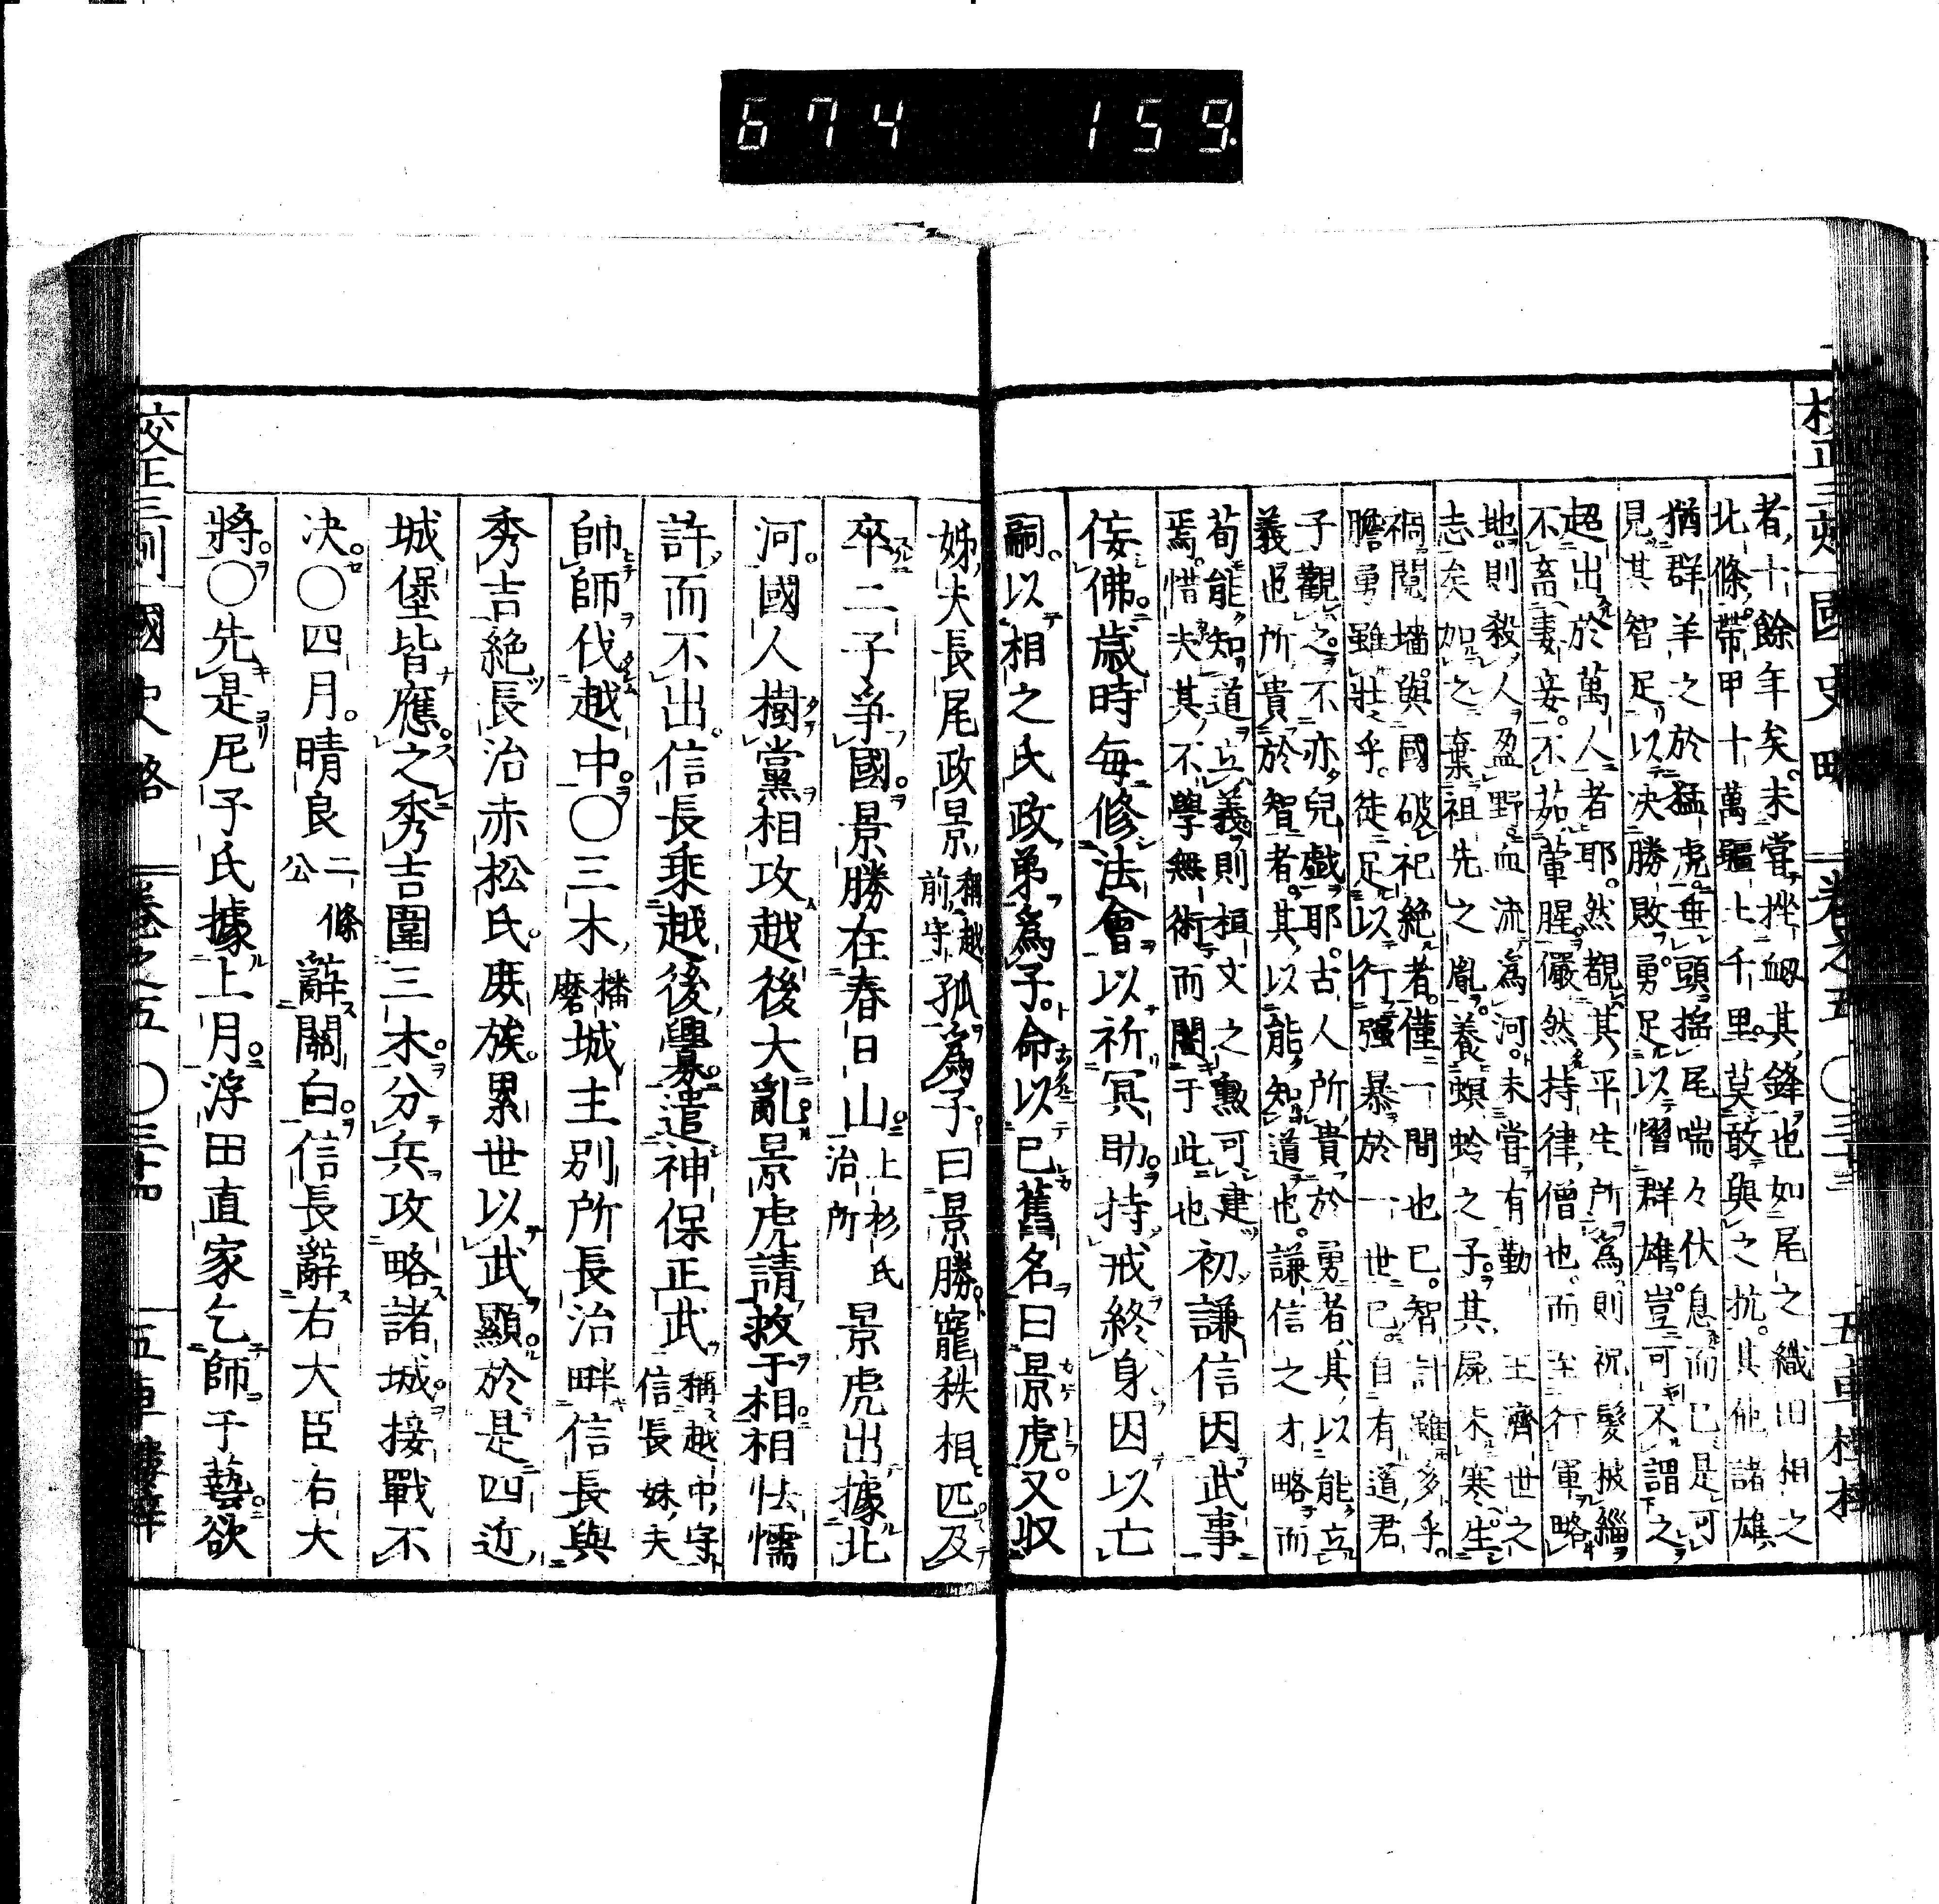 674 159
校正三刻 國史略 卷之五 ○三十三 五車樓梓
者十餘年矣未嘗挫衂其鋒也如尾之織田相之
北條帶甲十萬疆土千里莫敢與之抗其他諸雄
猶群羊之於猛虎垂頭搖尾喘々伏息而已是可
見其智足以决勝敗勇足以慴群雄豈可不謂之
超出於萬人者耶然觀其平生所爲則祝髮披緇
不畜妻妾不茹葷腥儼然持律僧也而至行軍略
地則殺人盈野血流爲河未嘗有勤 王濟世之
志矣加之棄祖先之胤養螟蛉之子其屍未寒生
禍鬩墻與國破祀絶者僅一間也已智計雖多乎
膽勇雖壯乎徒足以行强暴於一世已自有道君
子觀之不亦兒戲耶古人所貴於勇者其以能立
義也所貴於智者其以能知道也謙信之才略而
荀能知道立義則桓文之勲可建
焉惜夫其不學無術而闇于此也初謙信因武事
侫佛歳時毎修法會以祈冥助持戒終身因以亡
嗣以相之氏政弟爲子命以已舊名曰景虎又収
姊夫長尾政景稱越前守孤爲子曰景勝寵秩相匹及
卒二子爭國景勝在春日山上杉氏治所景虎出據北
河國人樹黨相攻越後大亂景虎請救于相相怯懦
許而不出信長乘越後釁遣神保正武稱越中守信長妹夫
帥師伐越中○三木播磨城主別所長治畔信長與
秀吉絶長治赤松氏庻族累世以武顯於是四近
城堡皆應之秀吉圍三木分兵攻略諸城接戰不
决○四月晴良二條公辭關白信長辭右大臣右大
將○先是尼子氏據上月浮田直家乞師于藝欲
校正三刻 國史略 卷之五 ○三十四 五車樓梓